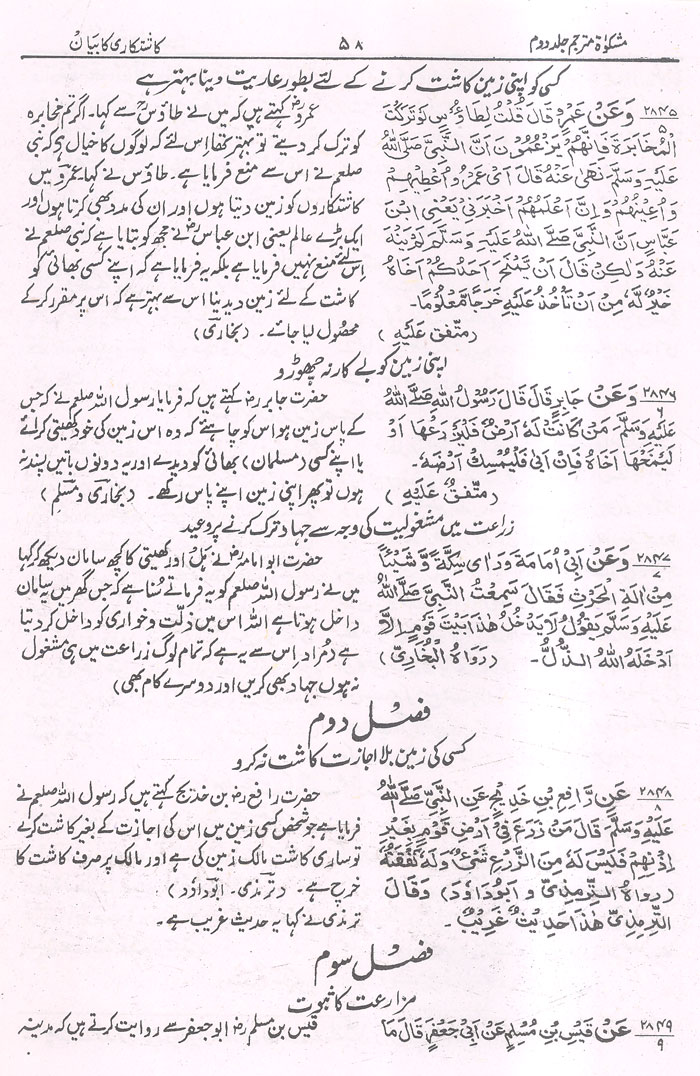 مشکوٰۃ مترجم جلد دوم
۵۸
کاشتکاری کا بیان
کسی کو اپنی زمین کاشت کرنے کے لئے بطور عاریت دینا بہتر ہے
۲۸۴۵
۵
وَعَنْ عَمْرٍو قَالَ قُلْتُ لِطَاوٗسٍ لَوْ تَرَكْتَ
الْمُخَابَرَةَ فَاِنَّهُمْ يَزْعُمُوْنَ اَنَّ النَّبِيَّ صَلَّى اللهُ
عَلَيْهِ وَسَلَّمَ نَهٰى عَنْهُ قَالَ اَىْ عَمْرُو اُعْطِيْهِمْ
وَاُعِيْنُهُمْ وَاِنَّ اَعْلَمَهُمْ اَخْبَرَنِىْ يَعْنِى ابْنَ
عَبَّاسٍ اَنَّ النَّبِيَّ صَلَّى اللهُ عَلَيْهِ وَسَلَّمَ لَمْ يَنْهَ
عَنْهُ وَلٰكِنْ قَالَ اَنْ يَّمْنَحَ اَحَدُكُمْ اَخَاهُ
خَيْرٌ لَّهٗ مِنْ اَنْ يَّأْخُذَ عَلَيْهِ خَرْجًا مَّعْلُوْمًا۔
(متفق علیہ)
عمروؓ کہتے ہیں کہ میں نے طاؤسؒ سے کہا۔ اگر تم مخابرہ
کو ترک کر دیتے تو بہتر تھا اس لئے کہ لوگوں کا خیال ہے کہ نبی
صلعم نے اس سے منع فرمایا ہے۔ طاؤس نے کہا۔ عمرو میں
کاشتکاروں کو زمین دیتا ہوں اور ان کی مدد بھی کرتا ہوں اور
ایک بڑے عالم یعنی ابن عباسؓ نے مجھ کو بتایا ہے کہ نبی صلعم نے
اس سے منع نہیں فرمایا ہے بلکہ یہ فرمایا ہے کہ اپنے کسی بھائی کو
کاشت کے لئے زمین دیدینا اس سے بہتر ہے کہ اس پر مقرر کرکے
محصول لیا جائے۔ (بخاری)
اپنی زمین کو بے کار نہ چھوڑو
۲۸۴۶
۶
وَعَنْ جَابِرٍ قَالَ قَالَ رَسُوْلُ اللهِ صَلَّى اللهُ
عَلَيْهِ وَسَلَّمَ مَنْ كَانَتْ لَهٗ اَرْضٌ فَلْيَزْرَعْهَا اَوْ
لِيَمْنَحْهَا اَخَاهُ فَاِنْ اَبٰى فَلْيُمْسِكْ اَرْضَهٗ۔
(متفق علیہ)
حضرت جابرؓ کہتے ہیں کہ فرمایا رسول اللہ صلعم نے کہ جس
کے پاس زمین ہو اس کو چاہئے کہ وہ اس زمین کی خود کھیتی کرائے
یا اپنے کسی (مسلمان) بھائی کو دیدے اور یہ دونوں باتیں پسند نہ
ہوں تو پھر اپنی زمین اپنے پاس رکھے۔ (بخاری و مسلم)
زراعت میں مشغولیت کی وجہ سے جہاد ترک کرنے پر وعید
۲۸۴۷
۷
وَعَنْ اَبِىْ اُمَامَةَ وَرَاٰى سِكَّةً وَّشَيْئًا
مِنْ اٰلَةِ الْحَرْثِ فَقَالَ سَمِعْتُ النَّبِيَّ صَلَّى اللهُ
عَلَيْهِ وَسَلَّمَ يَقُوْلُ لَا يَدْخُلُ هٰذَا بَيْتَ قَوْمٍ اِلَّا
اَدْخَلَهُ اللهُ الذُّلَّ۔ (رَوَاهُ الْبُخَارِىُّ)
حضرت ابو امامہؓ نے ہل اور کھیتی کا کچھ سامان دیکھ کر کہا
میں نے رسول اللہ صلعم کو یہ فرماتے سُنا ہے کہ جس گھر میں یہ سامان
داخل ہوتا ہے اللہ اس میں ذلّت و خواری کو داخل کر دیتا
ہے (مُراد اس سے یہ ہے کہ تمام لوگ زراعت میں ہی مشغول
نہ ہوں جہاد بھی کریں اور دوسرے کام بھی)
فصل دوم
کسی کی زمین بلا اجازت کاشت نہ کرو
۲۸۴۸
۸
عَنْ رَّافِعِ بْنِ خَدِيْجٍ عَنِ النَّبِيِّ صَلَّى اللهُ
عَلَيْهِ وَسَلَّمَ قَالَ مَنْ زَرَعَ فِىْ اَرْضِ قَوْمٍ بِغَيْرِ
اِذْنِهِمْ فَلَيْسَ لَهٗ مِنَ الزَّرْعِ شَىْءٌ وَلَهٗ نَفَقَتُهٗ
(رواہ التِّرْمِذِىُّ وَ اَبُوْدَاوٗدَ) وَقَالَ
التِّرْمِذِىُّ هٰذَا حَدِيْثٌ غَرِيْبٌ۔
حضرت رافعؓ بن خدیج کہتے ہیں کہ رسول اللہ صلعم نے
فرمایا ہے جو شخص کسی زمین میں اس کی اجازت کے بغیر کاشت کرے
تو ساری کاشت مالک زمین کی ہے اور مالک پر صرف کاشت کا
خرچ ہے۔ (ترمذی۔ ابوداؤد)
ترمذی نے کہا یہ حدیث غریب ہے۔
فصل سوم
مزارعت کا ثبوت
۲۸۴۹
۹
عَنْ قَيْسِ بْنِ مُسْلِمٍ عَنْ اَبِىْ جَعْفَرٍ قَالَ مَا
قیس بن مسلمؓ ابو جعفر سے روایت کرتے ہیں کہ مدینہ